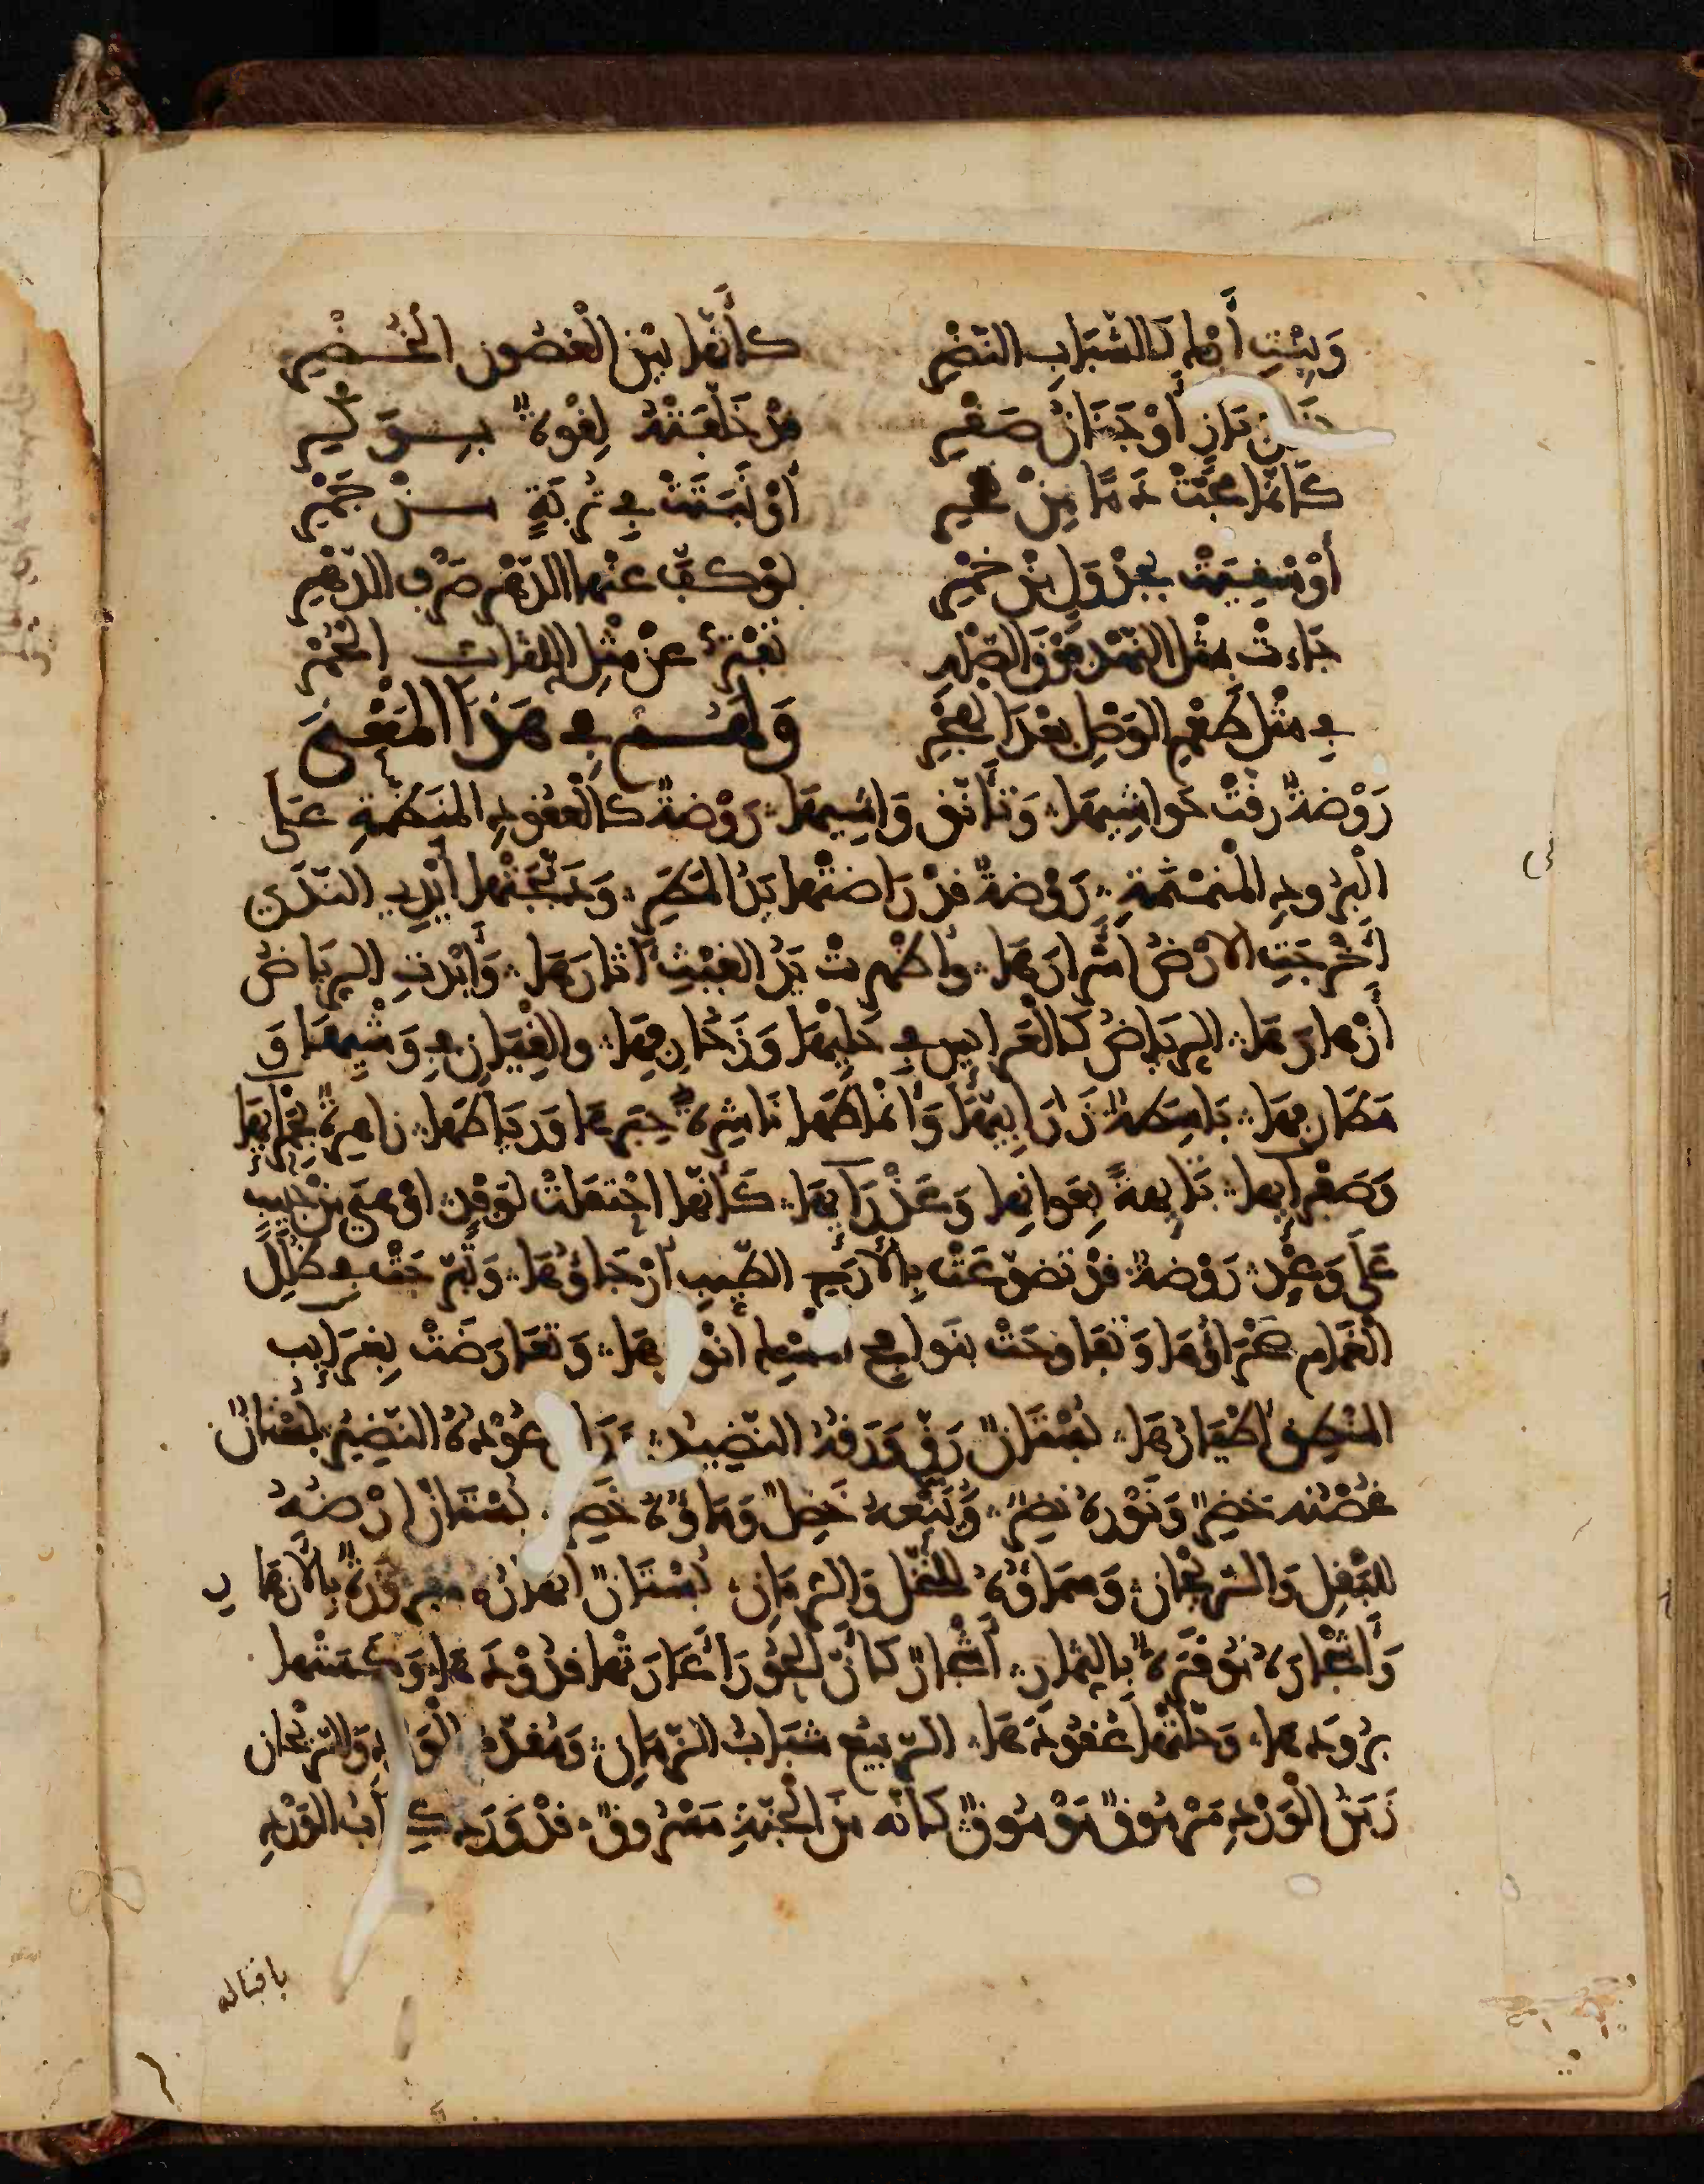 وَبِنْتِ أَيْكٍ كَالشَّبَابِ النَّضْرِ كَأَنَّهَا بَيْنَ الْغُصُونِ الْخُضْرِ
جَنَانُ بَازٍ أَوْ جَنَانُ صَقْرِ قَدْ خَلَّفَتْهُ لِقْوَةٌ بِوَكْرِ
كَأَنَّمَا مَجَّتْ دَمًا مِنْ نَحْرِ أَوْ نَبَتَتْ فِي تُرْبَةٍ مِنْ جَمْرِ
أَوْ سُقِيَتْ بِجَدْوَلٍ مِنْ خَمْرِ لَوْ كَفَّ عَنْهَا الدَّهْرُ صَرْفَ الدَّهْرِ
جَاءَتْ بِمِثْلِ النَّهْدِ فَوْقَ الصَّدْرِ تَفْتَرُّ عَنْ مِثْلِ اللِّثَاتِ الْحُمْرِ
فِي مِثْلِ طَعْمِ الْوَصْلِ بَعْدَ الْهَجْرِ وَلَهُمْ فِي هَذَا الْمَعْنَى
رَوْضَةٌ رَقَّتْ حَوَاشِيهَا وَتَأَنَّقَ وَاشِيهَا رَوْضَةٌ كَالْعُقُودِ الْمُنَظَّمَةِ عَلَى
الْبُرُودِ الْمُنَمْنَمَةِ رَوْضَةٌ قَدْ رَاضَتْهَا يَدُ الْمَطَرِ وَدَبَّجَتْهَا أَيْدِي النَّدَى
أَخْرَجَتِ الْأَرْضُ أَسْرَارَهَا وَأَظْهَرَتْ يَدُ الْغَيْثِ آثَارَهَا وَأَبْدَتِ الرِّيَاضُ
أَزْهَارَهَا الرِّيَاضُ كَالْعَرَائِسِ فِي حَلْيِهَا وَزَخَارِفِهَا وَالْقِيَانِ فِي وَشْيِهَا وَ
مَطَارِفِهَا بَاسِطَةٌ زَرَابِيَّهَا وَأَنْمَاطَهَا نَاشِرَةٌ حِبَرَهَا وَرِيَاطَهَا زَاهِيَةٌ بِحَمْرَائِهَا
وَصَفْرَائِهَا تَائِهَةٌ بِعَوَانِهَا وَعَذْرَائِهَا كَأَنَّهَا احْتَفَلَتْ لِوَفْدٍ أَوْ هِيَ مِنْ حَبِيبٍ
عَلَى وَعْدٍ رَوْضَةٌ قَدْ تَضَوَّعَتْ بِالْأَرَجِ الطَّيِّبِ أَرْجَاؤُهَا وَتَبَرَّجَتْ فِي ظُلَلِ
الْغَمَامِ صَحْرَاؤُهَا وَتَفَاوَحَتْ بِنَوَافِجِ الْمِسْكِ أَنْوَارُهَا وَتَعَارَضَتْ بِغَرَائِبِ
الْمَنْطِقِ أَطْيَارُهَا بُسْتَانٌ رَقَّ وَرَقُهُ النَّضِيدُ وَرَاقَ عُودُهُ النَّضِيرُ بُسْتَانٌ
غُصْنُهُ خَضِرٌ وَنَوْرُهُ نَضِرٌ وَنَبْعُهُ خَضِلٌ وَمَاؤُهُ خَصِرٌ بُسْتَانٌ أَرْضُهُ
لِلْبَقْلِ وَالرَّيْحَانِ وَسَمَاؤُهُ لِلنَّخْلِ وَالرُّمَّانِ بُسْتَانٌ أَنْهَارُهُ مَفْرُوزَةٌ بِالْأَزْهَارِ
وَأَشْجَارُهُ مُوقَرَةٌ بِالثِّمَارِ أَشْجَارٌ كَأَنَّ الْحُورَ أَعَارَتْهَا قُدُودَهَا وَكَسَتْهَا
بُرُودَهَا وَحَلَّتْهَا عُقُودَهَا الرَّبِيعُ شَبَابُ الزَّمَانِ وَمُقَدِّمَةُ الْوَرْدِ وَالرَّيْحَانِ
زَمَنُ الْوَرْدِ مَرْمُوقٌ مَوْمُوقٌ كَأَنَّهُ مِنَ الْجَنَّةِ مَسْرُوقٌ قَدْ وَرَدَ كِتَابُ الْوَرْدِ
باقباله